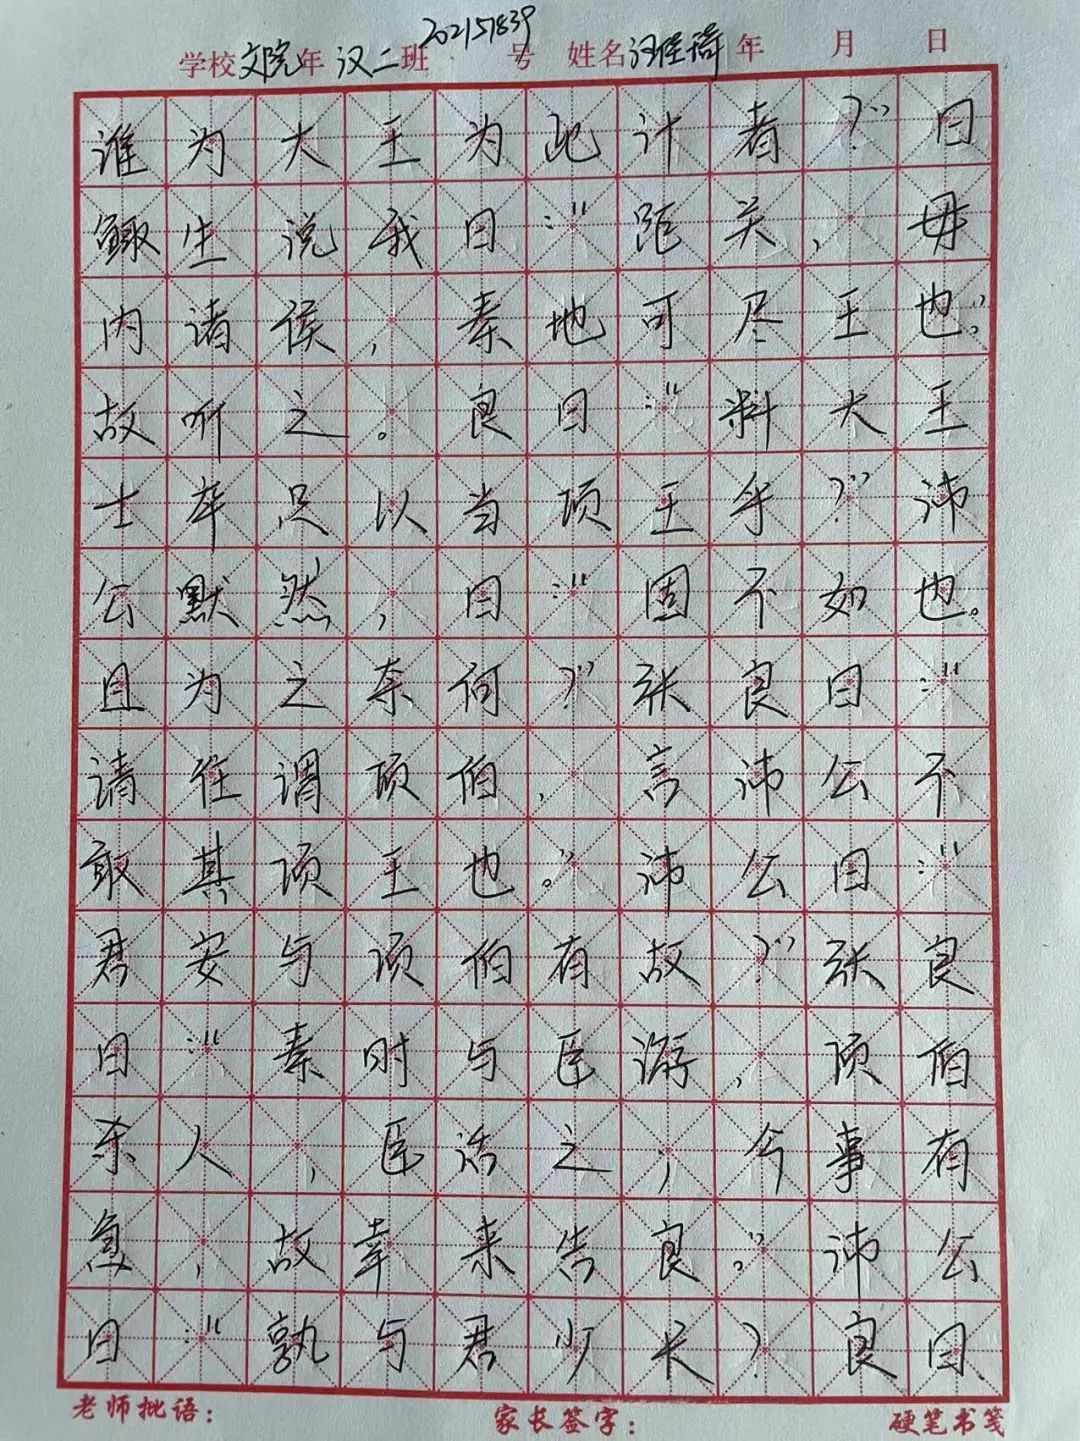 学校文院年汉二班202151839号 姓名汪佳荷年 月 日
谁为大王为此计者？”曰
鲰生说我曰：“距关，毋
内诸侯，秦地可尽王也。”
故听之。良曰：“料大王
士卒足以当项王乎？”沛
公默然，曰：“固不如也。
且为之奈何？”张良曰：“
请往谓项伯，言沛公不
敢其项王也。”沛公曰：“
君安与项伯有故？”张良
曰：“秦时与臣游，项伯
杀人，臣活之；今事有
急，故幸来告良。”沛公
曰：“孰与君少长？良曰
老师批语： 家长签字： 硬笔书笺